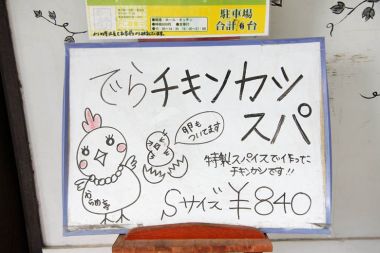 駐車場
合計6台
でらチキンカツ
スパ
卵も
ついてます
特製スパイスで作った
チキンカツです!!
Sサイズ ¥840